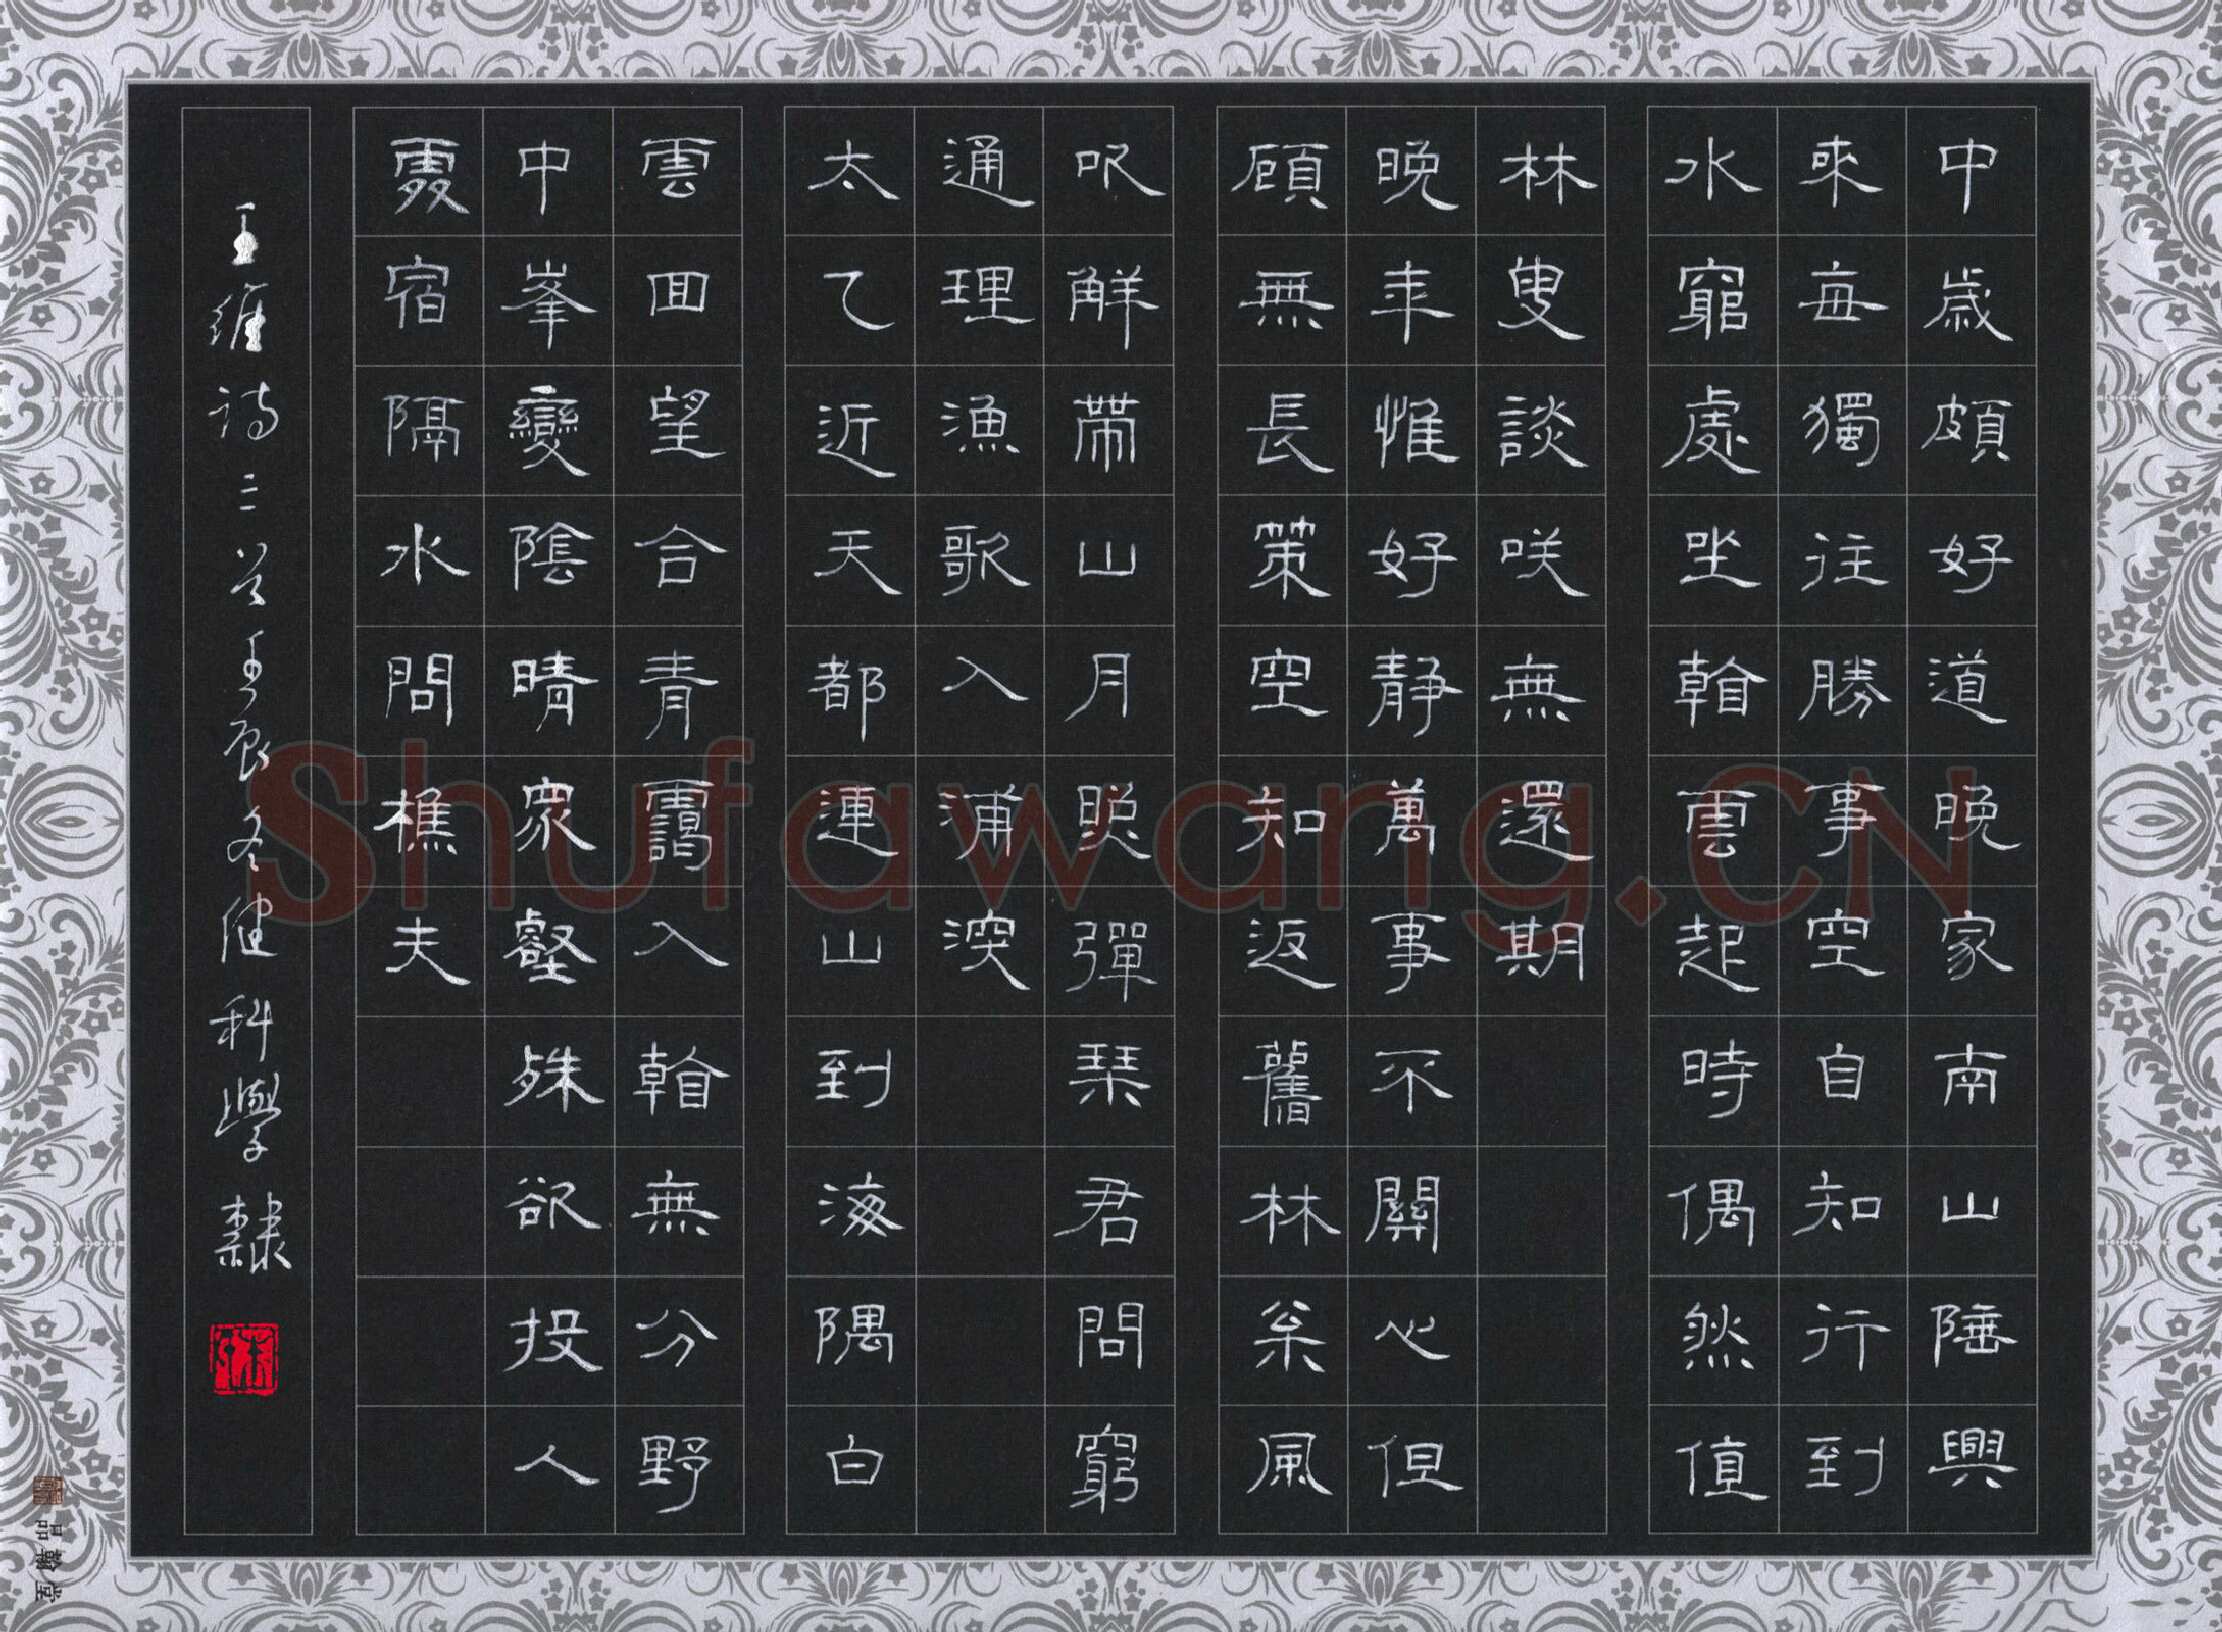 中歲頗好道晚家南山陲興
來每獨往勝事空自知行到
水窮處坐看雲起時偶然值
林叟談咲無還期
晚年惟好靜萬事不關心但
顧無長策空知返舊林枀風
吹解帶山月照彈琴君問窮
通理漁歌入浦深
太乙近天都連山到海隅白
雲回望合青靄入看無分野
中峯變陰晴眾壑殊欲投人
處宿隔水問樵夫
王維詩三首壬辰冬健科學隸
品翰堂
Shufawang.CN